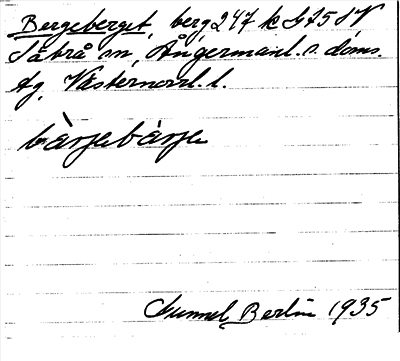 Bergeberget, berg 247 k GA5 SV
Säbrå sn, Ångermanl. s. doms.
tg, Västernorrl. l.
bàrjebàrje
Gunnel Berlin 1935